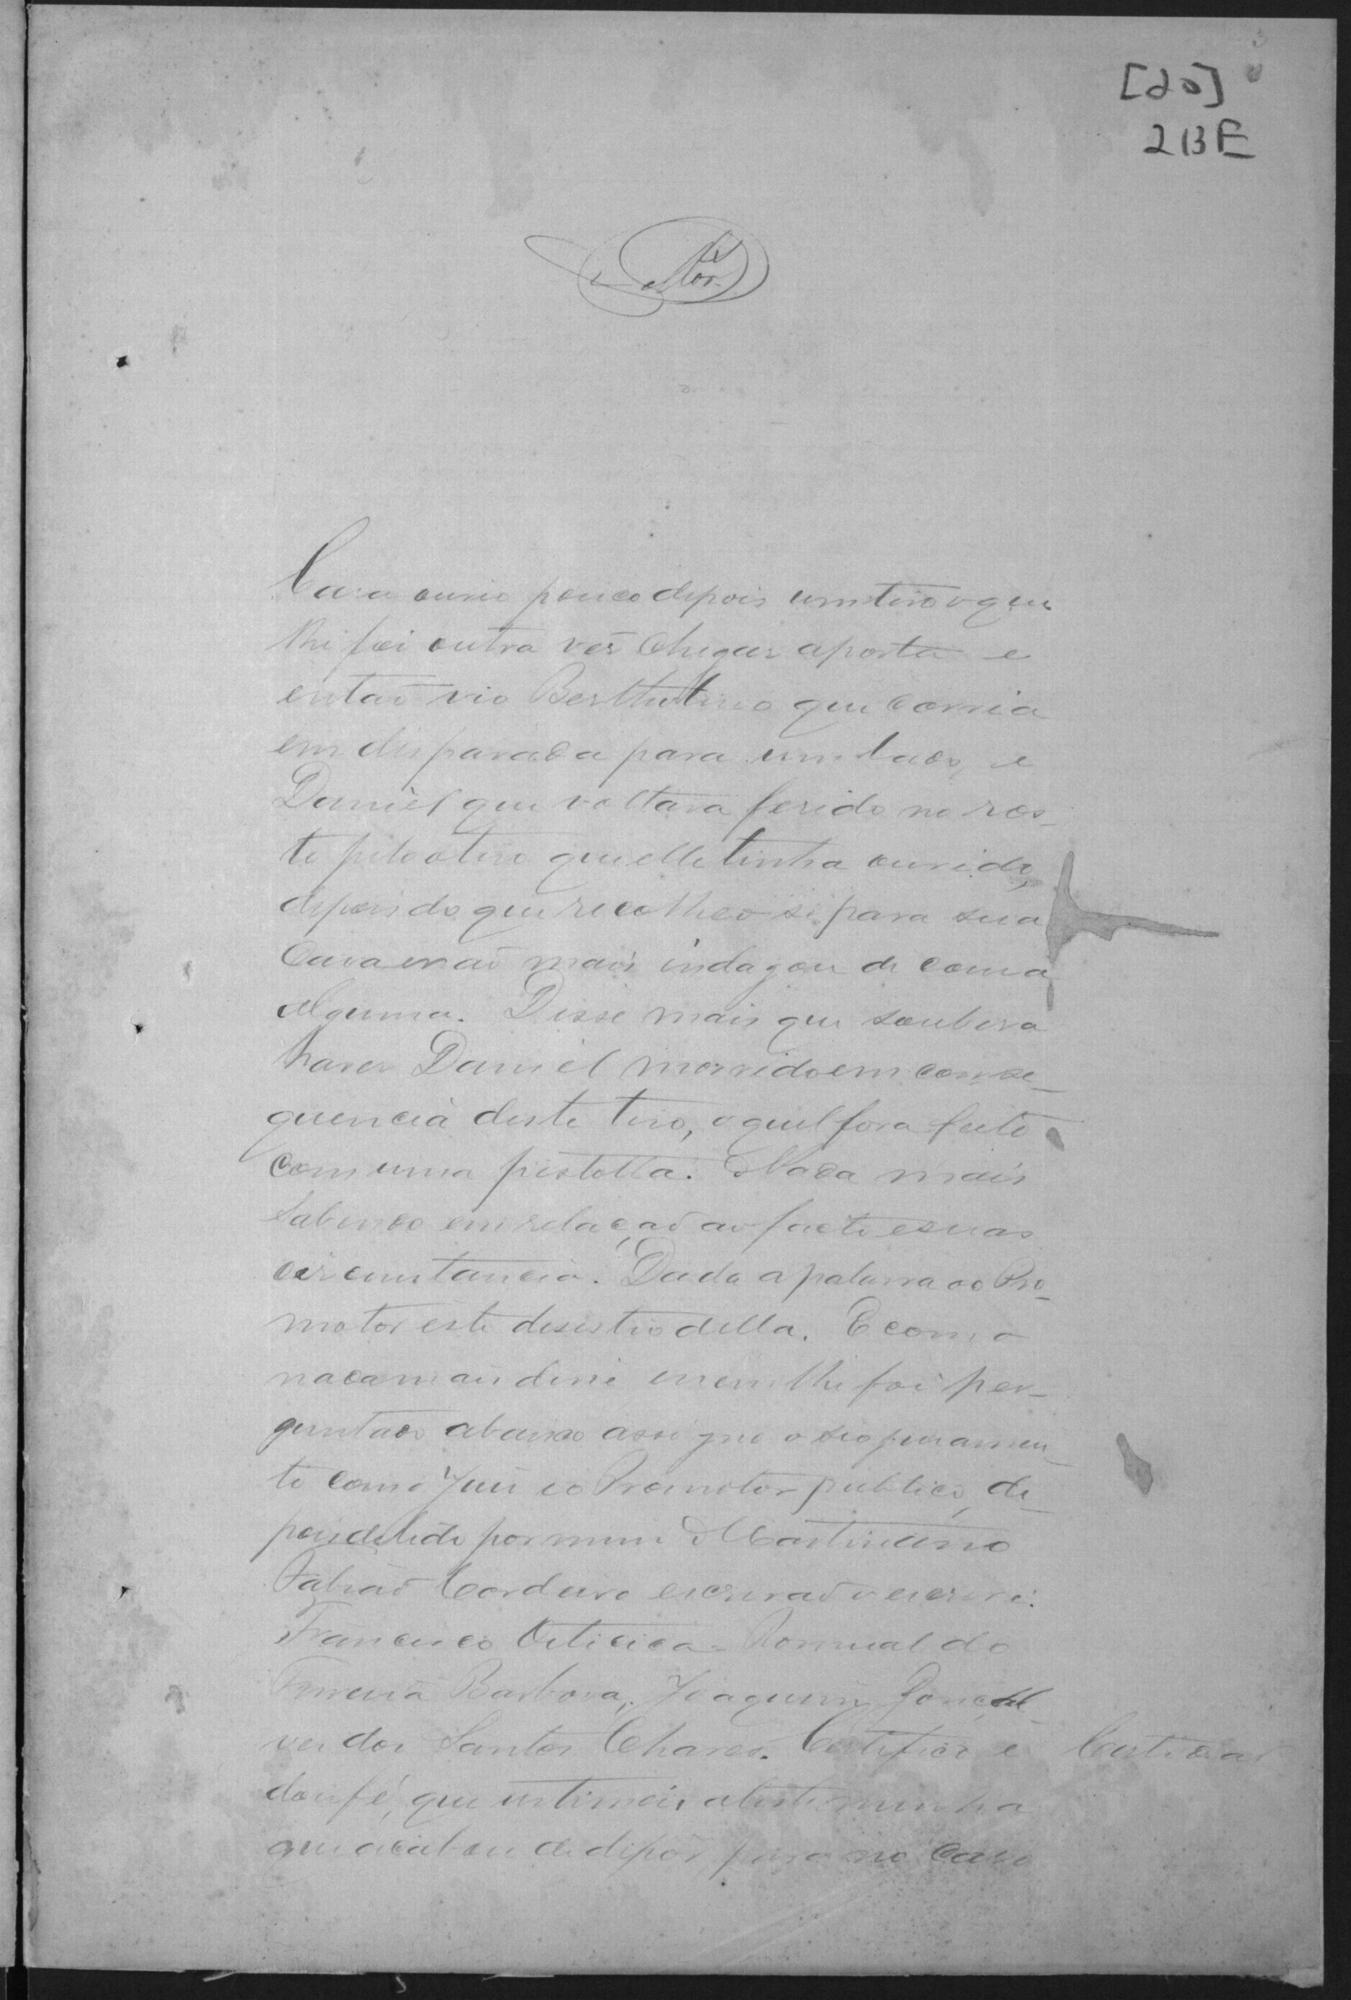 [20]
2BE
Casa ouvio pouco depois um tiro o que
lhe fei outra vez chegar a porta e
entaõ vio Berthulino que corria
em disparada para um lado, e
Daniel que voltava ferido no ros-
to pelo tiro que elle tinha ouvido,
depois do que recolheo-se para sua
Casa e naõ mais indagou de cousa
alguma. Disse mais que soubera
haver Daniel morrido em conse-
quencia deste tiro, o qual fora feito
com uma pistolla. Nada mais
sabendo em relaçaõ ao facto e suas
circumstancia. Dada a palavra ao Pro-
motor este desistio della. E como
nada mais disse e nem lhe foi per-
guntado abaixo assigno o seo juramen-
to com o Juiz e o Promotor publico, de-
pois de lido por mim Martiniano
Fabiaõ Cordeiro escrivaõ o escrevi.
Francisco Oiticica - Romualdo
Ferreira Barbosa, Joaquim Gonçal-
ves dos Santos Chaves. Certifico e
Certidaõ
dou fé, que intimei a testemunha
que acabou de depor para no caso